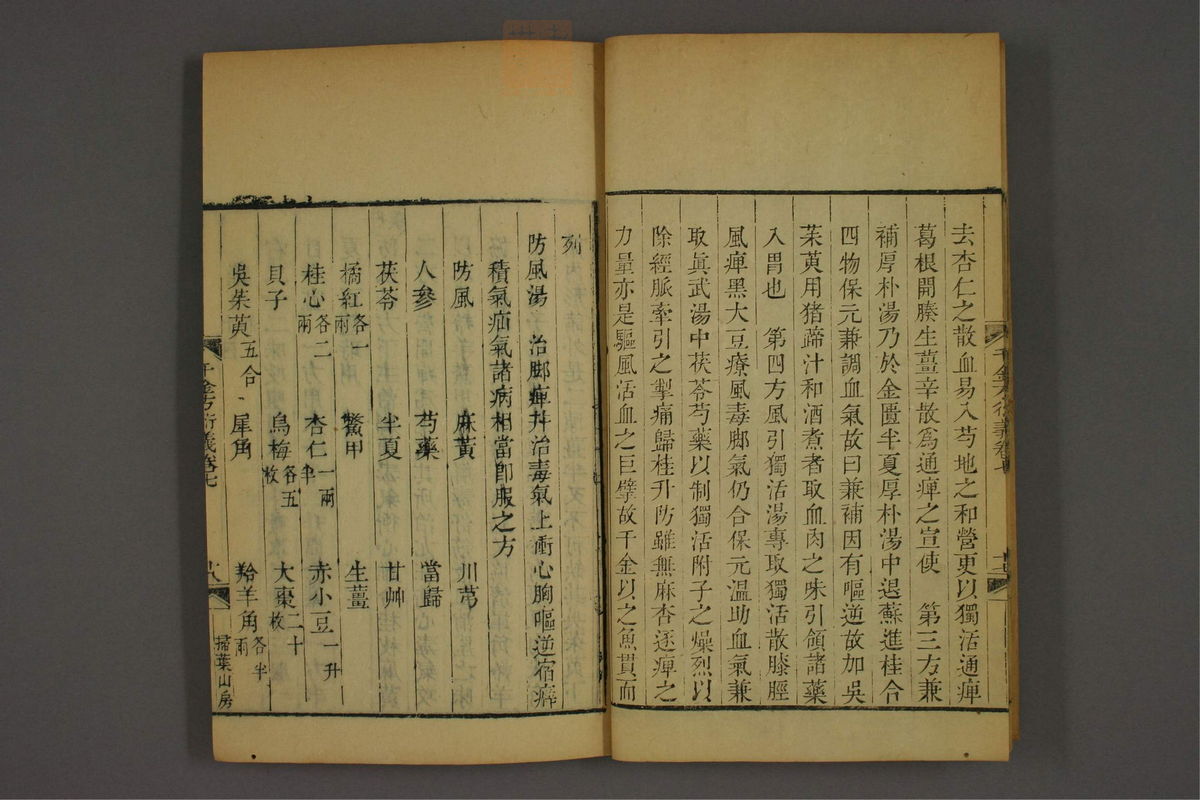 去杏仁之散血易入芍地之和營更以獨活通痺
葛根開腠生薑辛散爲通痺之宣使　第三方兼
補厚朴湯乃於金匱半夏厚朴湯中退蘇進桂合
四物保元兼調血氣故曰兼補因有嘔逆故加吳
茱萸用猪蹄汁和酒煮者取血肉之味引領諸藥
入胃也　第四方風引獨活湯專取獨活散膝脛
風痺黑大豆療風毒脚氣仍合保元溫助血氣兼
取眞武湯中茯苓芍藥以制獨活附子之燥烈以
除經脈牽引之掣痛歸桂升防雖無麻杏逐痺之
力量亦是驅風活血之巨擘故千金以之魚貫而
列
防風湯　治脚痺幷治毒氣上衝心胸嘔逆宿癖
積氣疝氣諸病相當卽服之方
防風　麻黃　川芎
人參　芍藥　當歸
茯苓　半夏　甘艸
橘紅各一兩　鱉甲　生薑
桂心各二兩　杏仁一兩半　赤小豆一升
貝子　烏梅各五枚　大棗二十枚
吳茱萸五合　犀角　羚羊角各半兩
千金方衍義卷七
掃葉山房